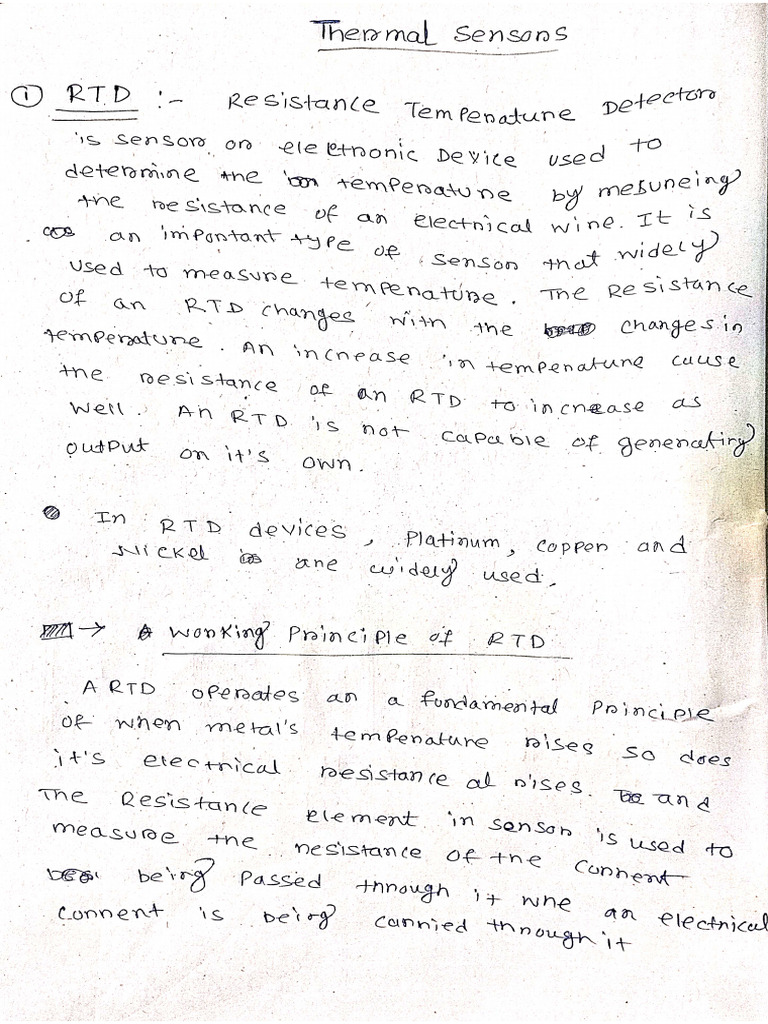 Thermal Sensors
① RTD :- Resistance Temperature Detector
is sensor or electronic Device used to
determine the temperature by mesureing
the resistance of an electrical wire. It is
an important type of sensor that widely
used to measure temperature. The Resistance
of an RTD changes with the changes in
temperature. An increase in temperature cause
the resistance of an RTD to increase as
well. An RTD is not capable of generating
output on it's own.
In RTD devices, Platinum, copper and
Nickel are widely used.
→ Working Principle of RTD
A RTD operates an a fundamental Principle
of when metal's temperature rises so does
it's electrical resistance al rises. and
The Resistance element in sensor is used to
measure the resistance of the current
being passed through it whe an electrical
current, is being carried through it